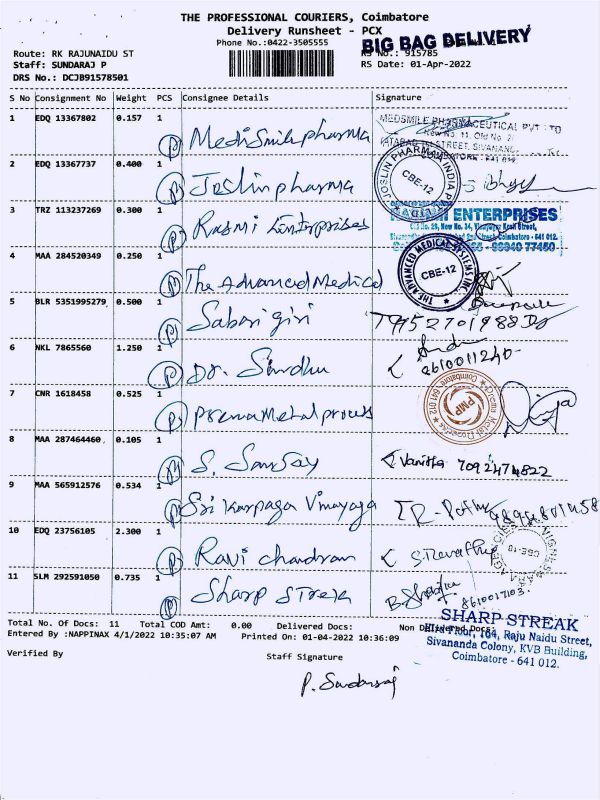 THE PROFESSIONAL COURIERS, Coimbatore
Delivery Runsheet - PCX
Phone No.:0422-3505555
BIG BAG DELIVERY
Route: RK RAJUNAIDU ST
RS No.: 915785
Staff: SUNDARAJ P
RS Date: 01-Apr-2022
DRS No.: DCJB91578501
S No Consignment No Weight PCS Consignee Details Signature
1 EDQ 13367802 0.157 1 Medismile pharma
MEDSMILE PHARMACEUTICAL PVT LTD
New No. 11, Old No.
STREET, SIVANANDA
COIMBATORE - 641 012
2 EDQ 13367737 0.400 1 Joslin pharma
JOSLIN PHARMA INDIA P
CBE-12
3 TRZ 113237269 0.300 1 Rasmi Enterprises
ENTERPRISES
Coimbatore - 641 012.
98940 77460
4 MAA 284520349 0.250 1 The Advanced Medical
THE ADVANCED MEDICAL SYSTEMS INC.
CBE-12
5 BLR 5351995279 0.500 1 Sabari giri
79952701988
6 NKL 7865560 1.250 1 Dr. Sindhu
8610011240
7 CNR 1618458 0.525 1 Prema Metal process
Prema Metal Process
Coimbatore 641 012
PMP
8 MAA 287464460 0.105 1 S. Sanjay
Vanitha 7092474822
9 MAA 565912576 0.534 1 Sri Karpaga Vinayaga
10 EDQ 23756105 2.300 1 Ravi chandran
S. Revathy
CBE-10
11 SLM 292591050 0.735 1 Sharp Streak
SHARP STREAK
IIIrd Floor, 164, Raju Naidu Street,
Sivananda Colony, KVB Building,
Coimbatore - 641 012.
Total No. Of Docs: 11 Total COD Amt: 0.00 Delivered Docs: Non Delivered Docs:
Entered By :NAPPINAX 4/1/2022 10:35:07 AM Printed On: 01-04-2022 10:36:09
Verified By Staff Signature
P. Sundaraj